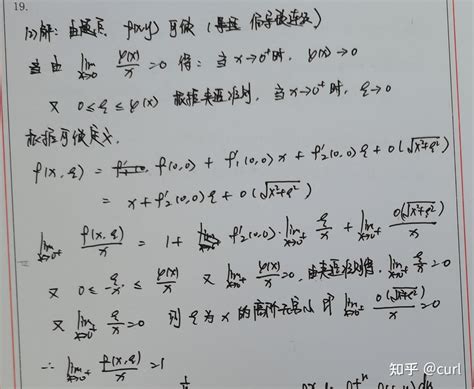 19.
(2)解: 由题意 f(x,y) 可微 (偏导数连续)
由 lim_{x→0} φ(x)/x = 0 得: 当 x→0⁺ 时, φ(x)→0
又 0≤ξ≤φ(x) 根据夹逼准则, 当 x→0⁺ 时, ξ→0
根据可微定义,
f(x,ξ) = f(0,0) + f'₁(0,0)x + f'₂(0,0)ξ + o(√x²+ξ²)
= x + f'₂(0,0)ξ + o(√x²+ξ²)
lim_{x→0⁺} f(x,ξ)/x = 1 + f'₂(0,0)·lim_{x→0⁺} ξ/x + lim_{x→0⁺} o(√x²+ξ²)/x
又 0≤ ξ/x ≤ φ(x)/x 又 lim_{x→0⁺} φ(x)/x =0, 由夹逼准则得, lim_{x→0⁺} ξ/x =0
又 lim_{x→0⁺} ξ/x =0 则 ξ 为 x 的高阶无穷小 即 lim_{x→0⁺} o(√x²+ξ²)/x =0
∴ lim_{x→0⁺} f(x,ξ)/x =1
知乎 @curl